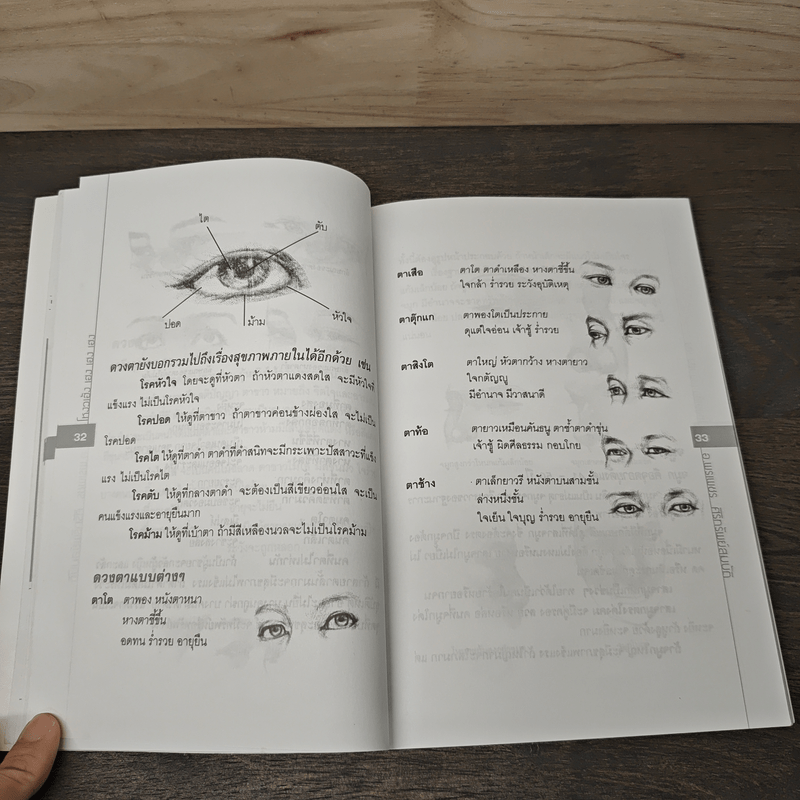 ไต
ตับ
ปอด
ม้าม
หัวใจ
ดวงตายังบอกรวมไปถึงเรื่องสุขภาพภายในได้อีกด้วย เช่น
โรคหัวใจ โดยจะดูที่หัวตา ถ้าหัวตาแดงสดใส จะมีหัวใจที่
แข็งแรง ไม่เป็นโรคหัวใจ
โรคปอด ให้ดูที่ตาขาว ถ้าตาขาวค่อนข้างผ่องใส จะไม่เป็น
โรคปอด
โรคไต ให้ดูที่ตาดำ ตาดำที่ดำสนิทจะมีกระเพาะปัสสาวะที่แข็ง
แรง ไม่เป็นโรคไต
โรคตับ ให้ดูที่กลางตาดำ จะต้องเป็นสีเขียวอ่อนใส จะเป็น
คนแข็งแรงและอายุยืนมาก
โรคม้าม ให้ดูที่เบ้าตา ถ้ามีสีเหลืองนวลจะไม่เป็นโรคม้าม
ดวงตาแบบต่างๆ
ตาโต ตาพอง หนังตาหนา
หางตาชี้ขึ้น
อดทน ร่ำรวย อายุยืน
32
โหงวเฮ้ง เฮง เฮง เฮง
ตาเสือ ตาโต ตาดำเหลือง หางตาชี้ขึ้น
ใจกล้า ร่ำรวย ระวังอุบัติเหตุ
ตาตุ๊กแก ตาพองโตเป็นประกาย
ดุแต่ใจอ่อน เจ้าชู้ ร่ำรวย
ตาสิงโต ตาใหญ่ หัวตากว้าง หางตายาว
ใจกตัญญู
มีอำนาจ มีวาสนาดี
ตาท้อ ตายาวเหมือนคันธนู ตาช้ำตาดำขุ่น
เจ้าชู้ ผิดศีลธรรม กอบโกย
ตาช้าง ตาเล็กยาวรี หนังตาบนสามชั้น
ล่างหนึ่งชั้น
ใจเย็น ใจบุญ ร่ำรวย อายุยืน
33